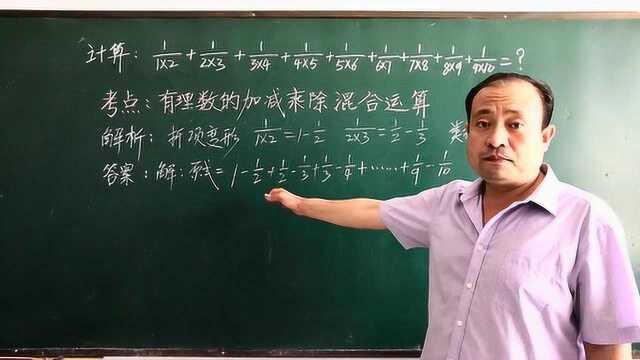 计算: 1/1×2 + 1/2×3 + 1/3×4 + 1/4×5 + 1/5×6 + 1/6×7 + 1/7×8 + 1/8×9 + 1/9×10 = ?
考点:有理数的加减乘除混合运算
解析: 拆项变形 1/1×2 = 1 - 1/2 1/2×3 = 1/2 - 1/3
答案:解:原式= 1 - 1/2 + 1/2 - 1/3 + 1/3 - 1/4 + …… + 1/9 - 1/10